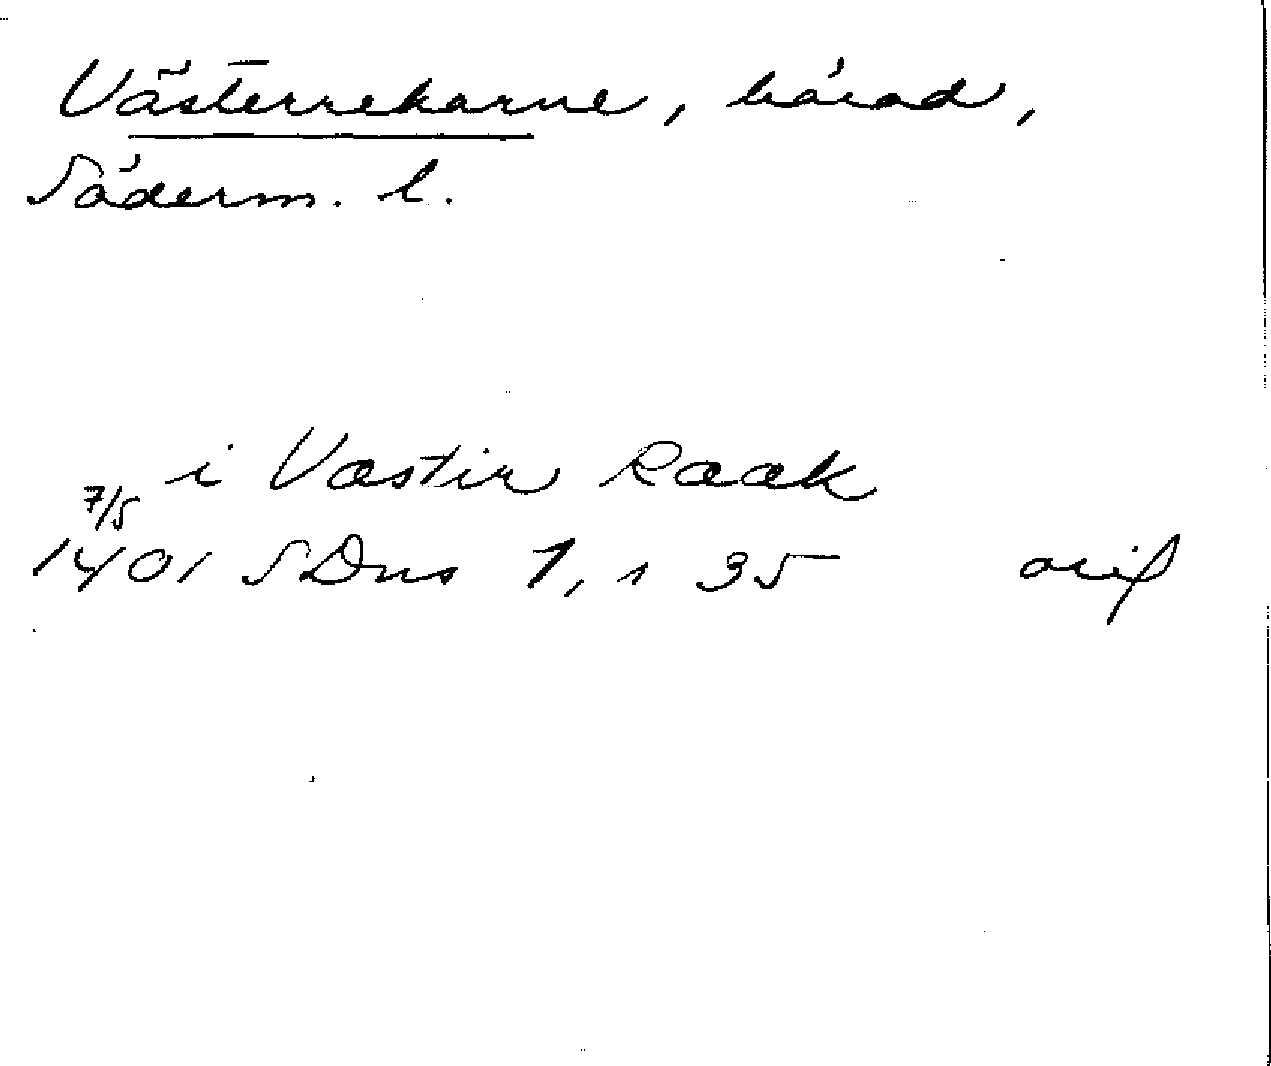 Västerrekarne, härad,
Söderm. l.
i Væstir Rææk
7/5
1401 SDns 1, s 35 orig